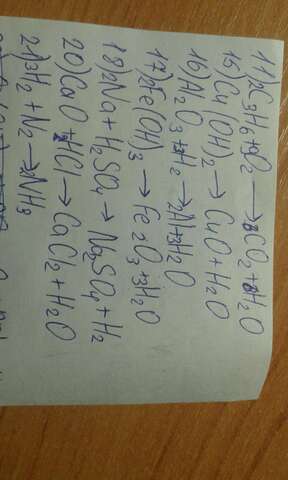 11) 2C3H6+9O2 → 6CO2+6H2O
15) Cu(OH)2 → CuO+H2O
16) Al2O3+3H2 → 2Al+3H2O
17) 2Fe(OH)3 → Fe2O3+3H2O
18) 2Na+H2SO4 → Na2SO4+H2
20) CaO+2HCl → CaCl2+H2O
21) 3H2+N2 → 2NH3